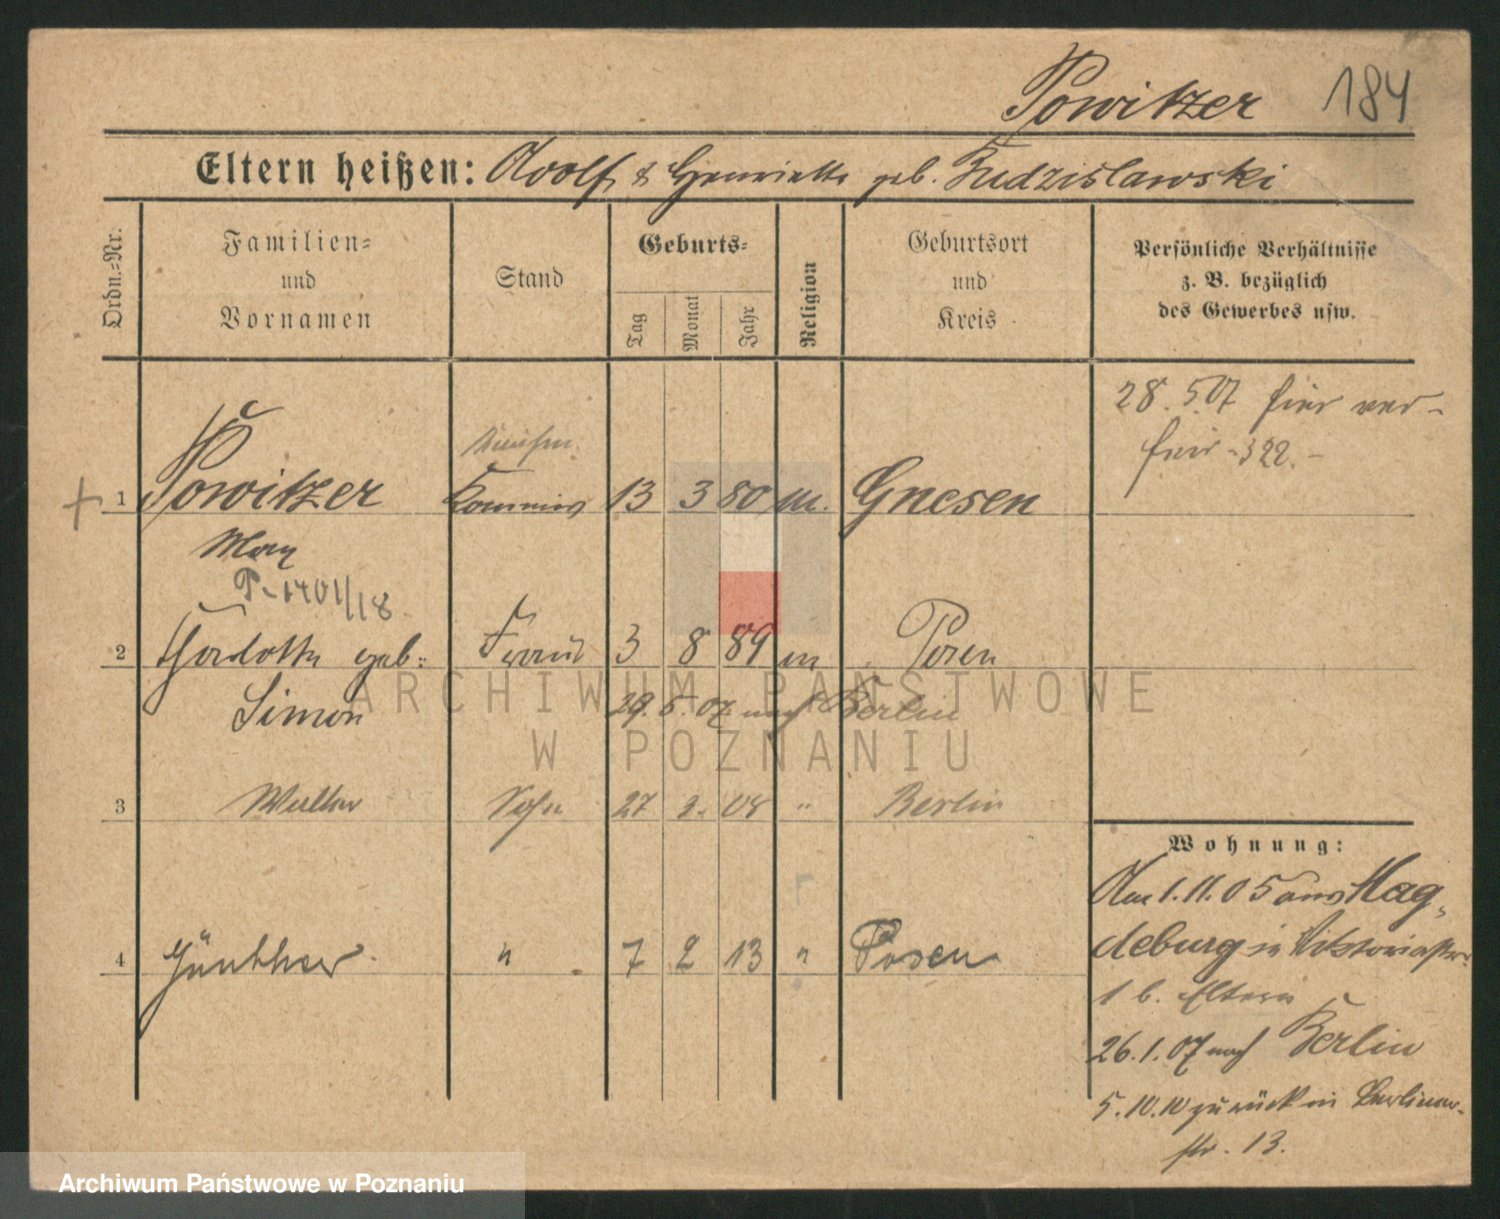 Powitzer 184
Eltern heißen: Adolf & Henriette geb. Kudzislawski
Ordn.=Nr.
Familien=
und
Vornamen
Stand
Geburts=
Tag
Monat
Jahr
Religion
Geburtsort
und
Kreis
Persönliche Verhältnisse
z. B. bezüglich
des Gewerbes usw.
28. 5. 07 hier ver-
heir. 322.
+ 1 Powitzer Kommis 13 3 80 m. Gnesen
Max
P-1401/18
2 Charlotte geb: Frau 3 8 89 m Posen
Simon 29. 5. 07 nach Berlin
3 Walter Sohn 27 2. 08 " Berlin
4 Günther " 7 2 13 " Posen
Wohnung:
Am 1. 11. 05 aus Mag-
deburg in Viktoriastr.
1 b. Eltern
26. 1. 07 nach Berlin
5. 10. 10 zurück in Berliner-
str. 13.
ARCHIWUM PAŃSTWOWE
W POZNANIU
Archiwum Państwowe w Poznaniu